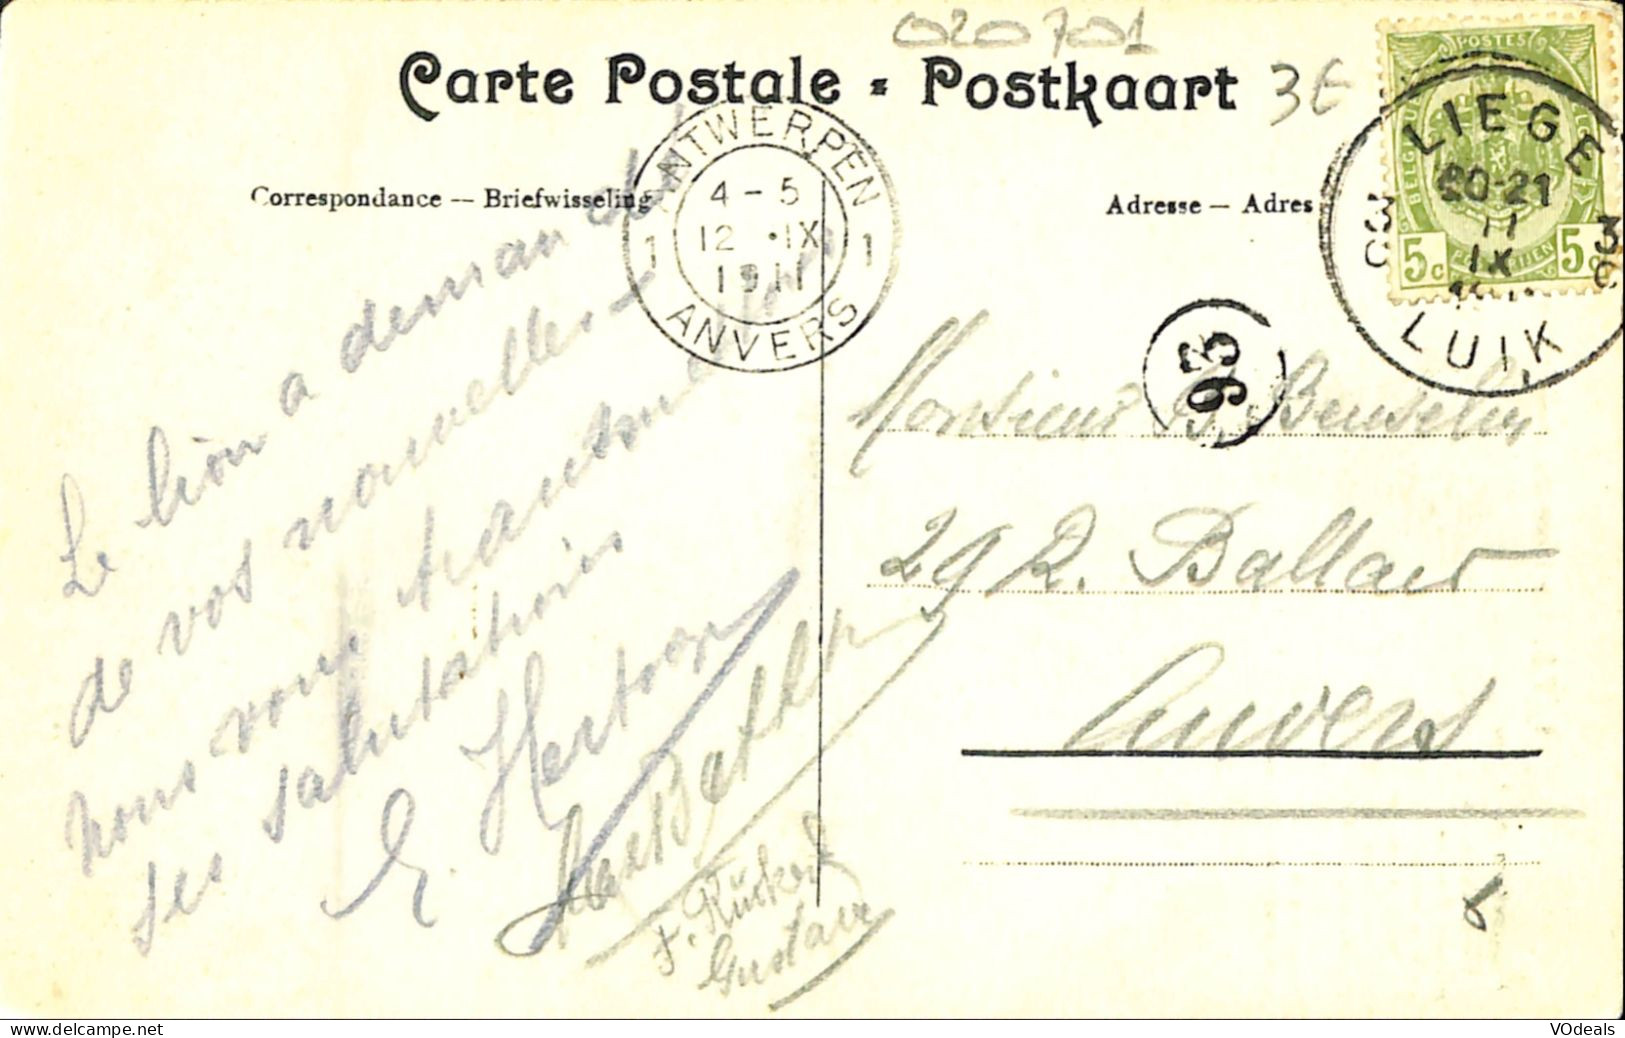 020701
Carte Postale - Postkaart 3€
Correspondance — Briefwisseling
Adresse — Adres
ANTWERPEN
4 - 5
12 . IX
1911
1 1
ANVERS
POSTES
BELGIQUE
5c 5c
LIEGE
20-21
11
IX
3C 3C
LUIK
93
Le lion a demandé
de vos nouvelles —
nous vous transmettons
ses salutations
E. Hertoog
F. Rückert
Gustave
Monsieur G. Beuselin
29 R. Ballaer
Anvers
VOdeals